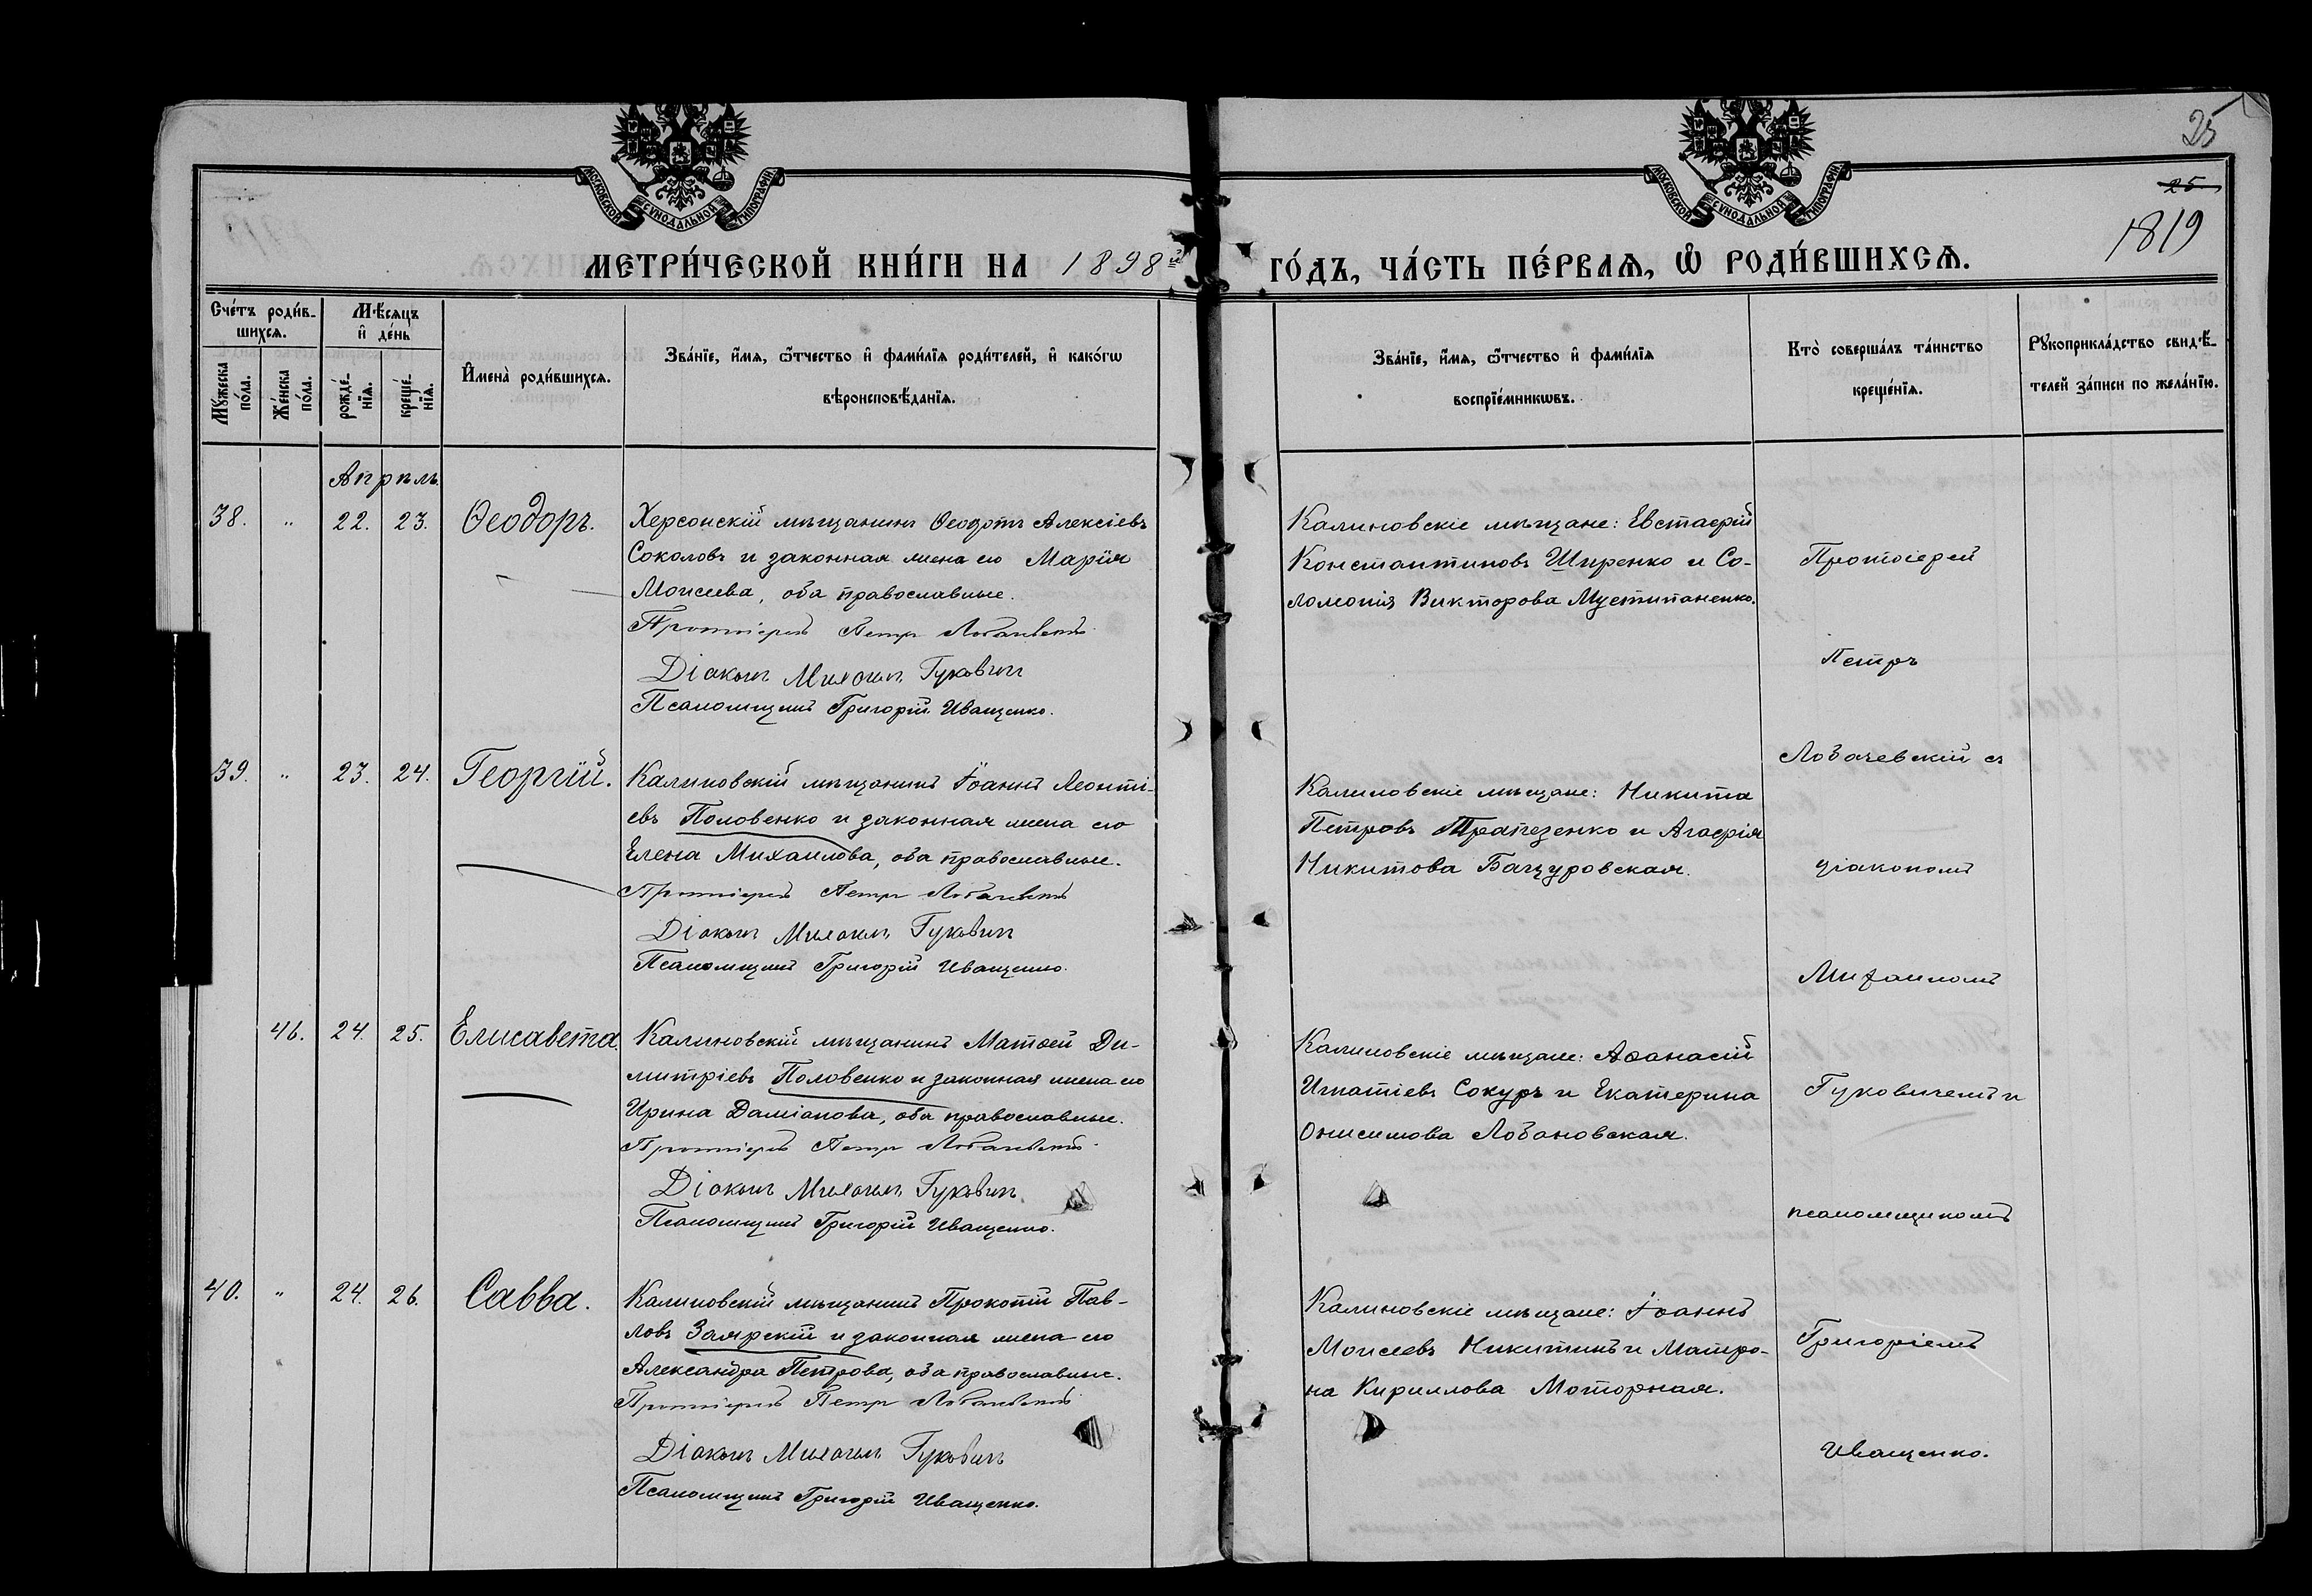 МОСКОВСКОЙ СѴНОДАЛЬНОЙ ТИПОГРАФІИ
МОСКОВСКОЙ СѴНОДАЛЬНОЙ ТИПОГРАФІИ
25
25
1819
МЕТРИ́ЧЕСКОЙ КНИ́ГИ НА 1898й
ГО́ДЪ, ЧА́СТЬ ПЕ́РВАѦ, Ѡ РОДИ́ВШИХСѦ.
Сче́тъ роди́в-
шихсѧ.
Мѣ́сѧцъ
и҆ де́нь
Мꙋ́жеска
по́ла.
Же́нска
по́ла.
рожде́-
нїѧ.
креще́-
нїѧ.
И҆мена̀ роди́вшихсѧ.
Зва́нїе, и҆́мѧ, ѻ҆́тчество и҆ фами́лїѧ роди́телей, и҆ како́гѡ
вѣроисповѣ́данїѧ.
Зва́нїе, и҆́мѧ, ѻ҆́тчество и҆ фами́лїѧ
воспрїе́мникѡвъ.
Кто̀ соверша́лъ та́инство
креще́нїѧ.
Рꙋкоприкла́дство свидѣ́-
телей за́писи по жела́нїю.
Апрѣль.
38. „ 22. 23. Ѳеодоръ.
Херсонскій мѣщанинъ Ѳеодотъ Алексіевъ
Соколовъ и законная жена его Марія
Моисеева, оба православные.
Протоіерей Петръ Лобачевскій
Діаконъ Михаилъ Гуковичъ
Псаломщикъ Григорій Иващенко.
Калиновскіе мѣщане: Евстафій
Константиновъ Ширенко и Со-
ломонія Викторова
39. „ 23. 24. Георгій.
Калиновскій мѣщанинъ Іоаннъ Леонті-
евъ Половенко и законная жена его
Елена Михаилова, оба православные.
Протоіерей Петръ Лобачевскій
Діаконъ Михаилъ Гуковичъ
Псаломщикъ Григорій Иващенко.
Калиновскіе мѣщане: Никита
Петровъ Трапезенко и Агафія
Никитова Бащуровская.
46. 24. 25. Елисавета.
Калиновскій мѣщанинъ Матѳей Ди-
митріевъ Половенко и законная жена его
Ирина Даміанова, оба православные.
Протоіерей Петръ Лобачевскій
Діаконъ Михаилъ Гуковичъ
Псаломщикъ Григорій Иващенко.
Калиновскіе мѣщане: Аѳанасій
Игнатіевъ Сокуръ и Екатерина
Онисимова Лобановская.
40. „ 24. 26. Савва.
Калиновскій мѣщанинъ Прокопій Пав-
ловъ Заярскій и законная жена его
Александра Петрова, оба православные.
Протоіерей Петръ Лобачевскій
Діаконъ Михаилъ Гуковичъ
Псаломщикъ Григорій Иващенко.
Калиновскіе мѣщане: Іоаннъ
Моисеевъ Никитинъ и Матро-
на Кириллова Моторная.
Протоіерей
Петръ
Лобачевскій съ
діакономъ
Михаиломъ
Гуковичемъ и
псаломщикомъ
Григоріемъ
Иващенко.